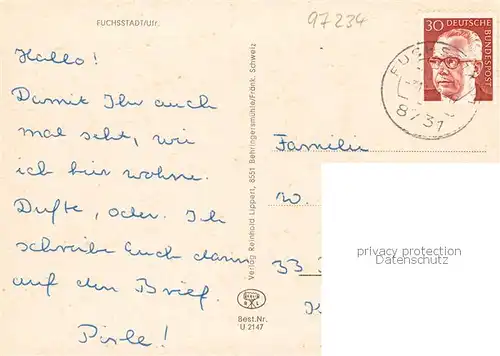 FUCHSSTADT/Ufr.
97234
Hallo!
Damit Ihr auch
mal seht, wie
ich hier wohne.
Dufte, oder. Ich
schreibe Euch dann
auf den Brief.
Verlag Reinhold Lippert, 8551 Behringersmühle/Fränk. Schweiz
Best.Nr.
U 2147
30 DEUTSCHE
BUNDESPOST
8731
Familie
W.
33
privacy protection
Datenschutz